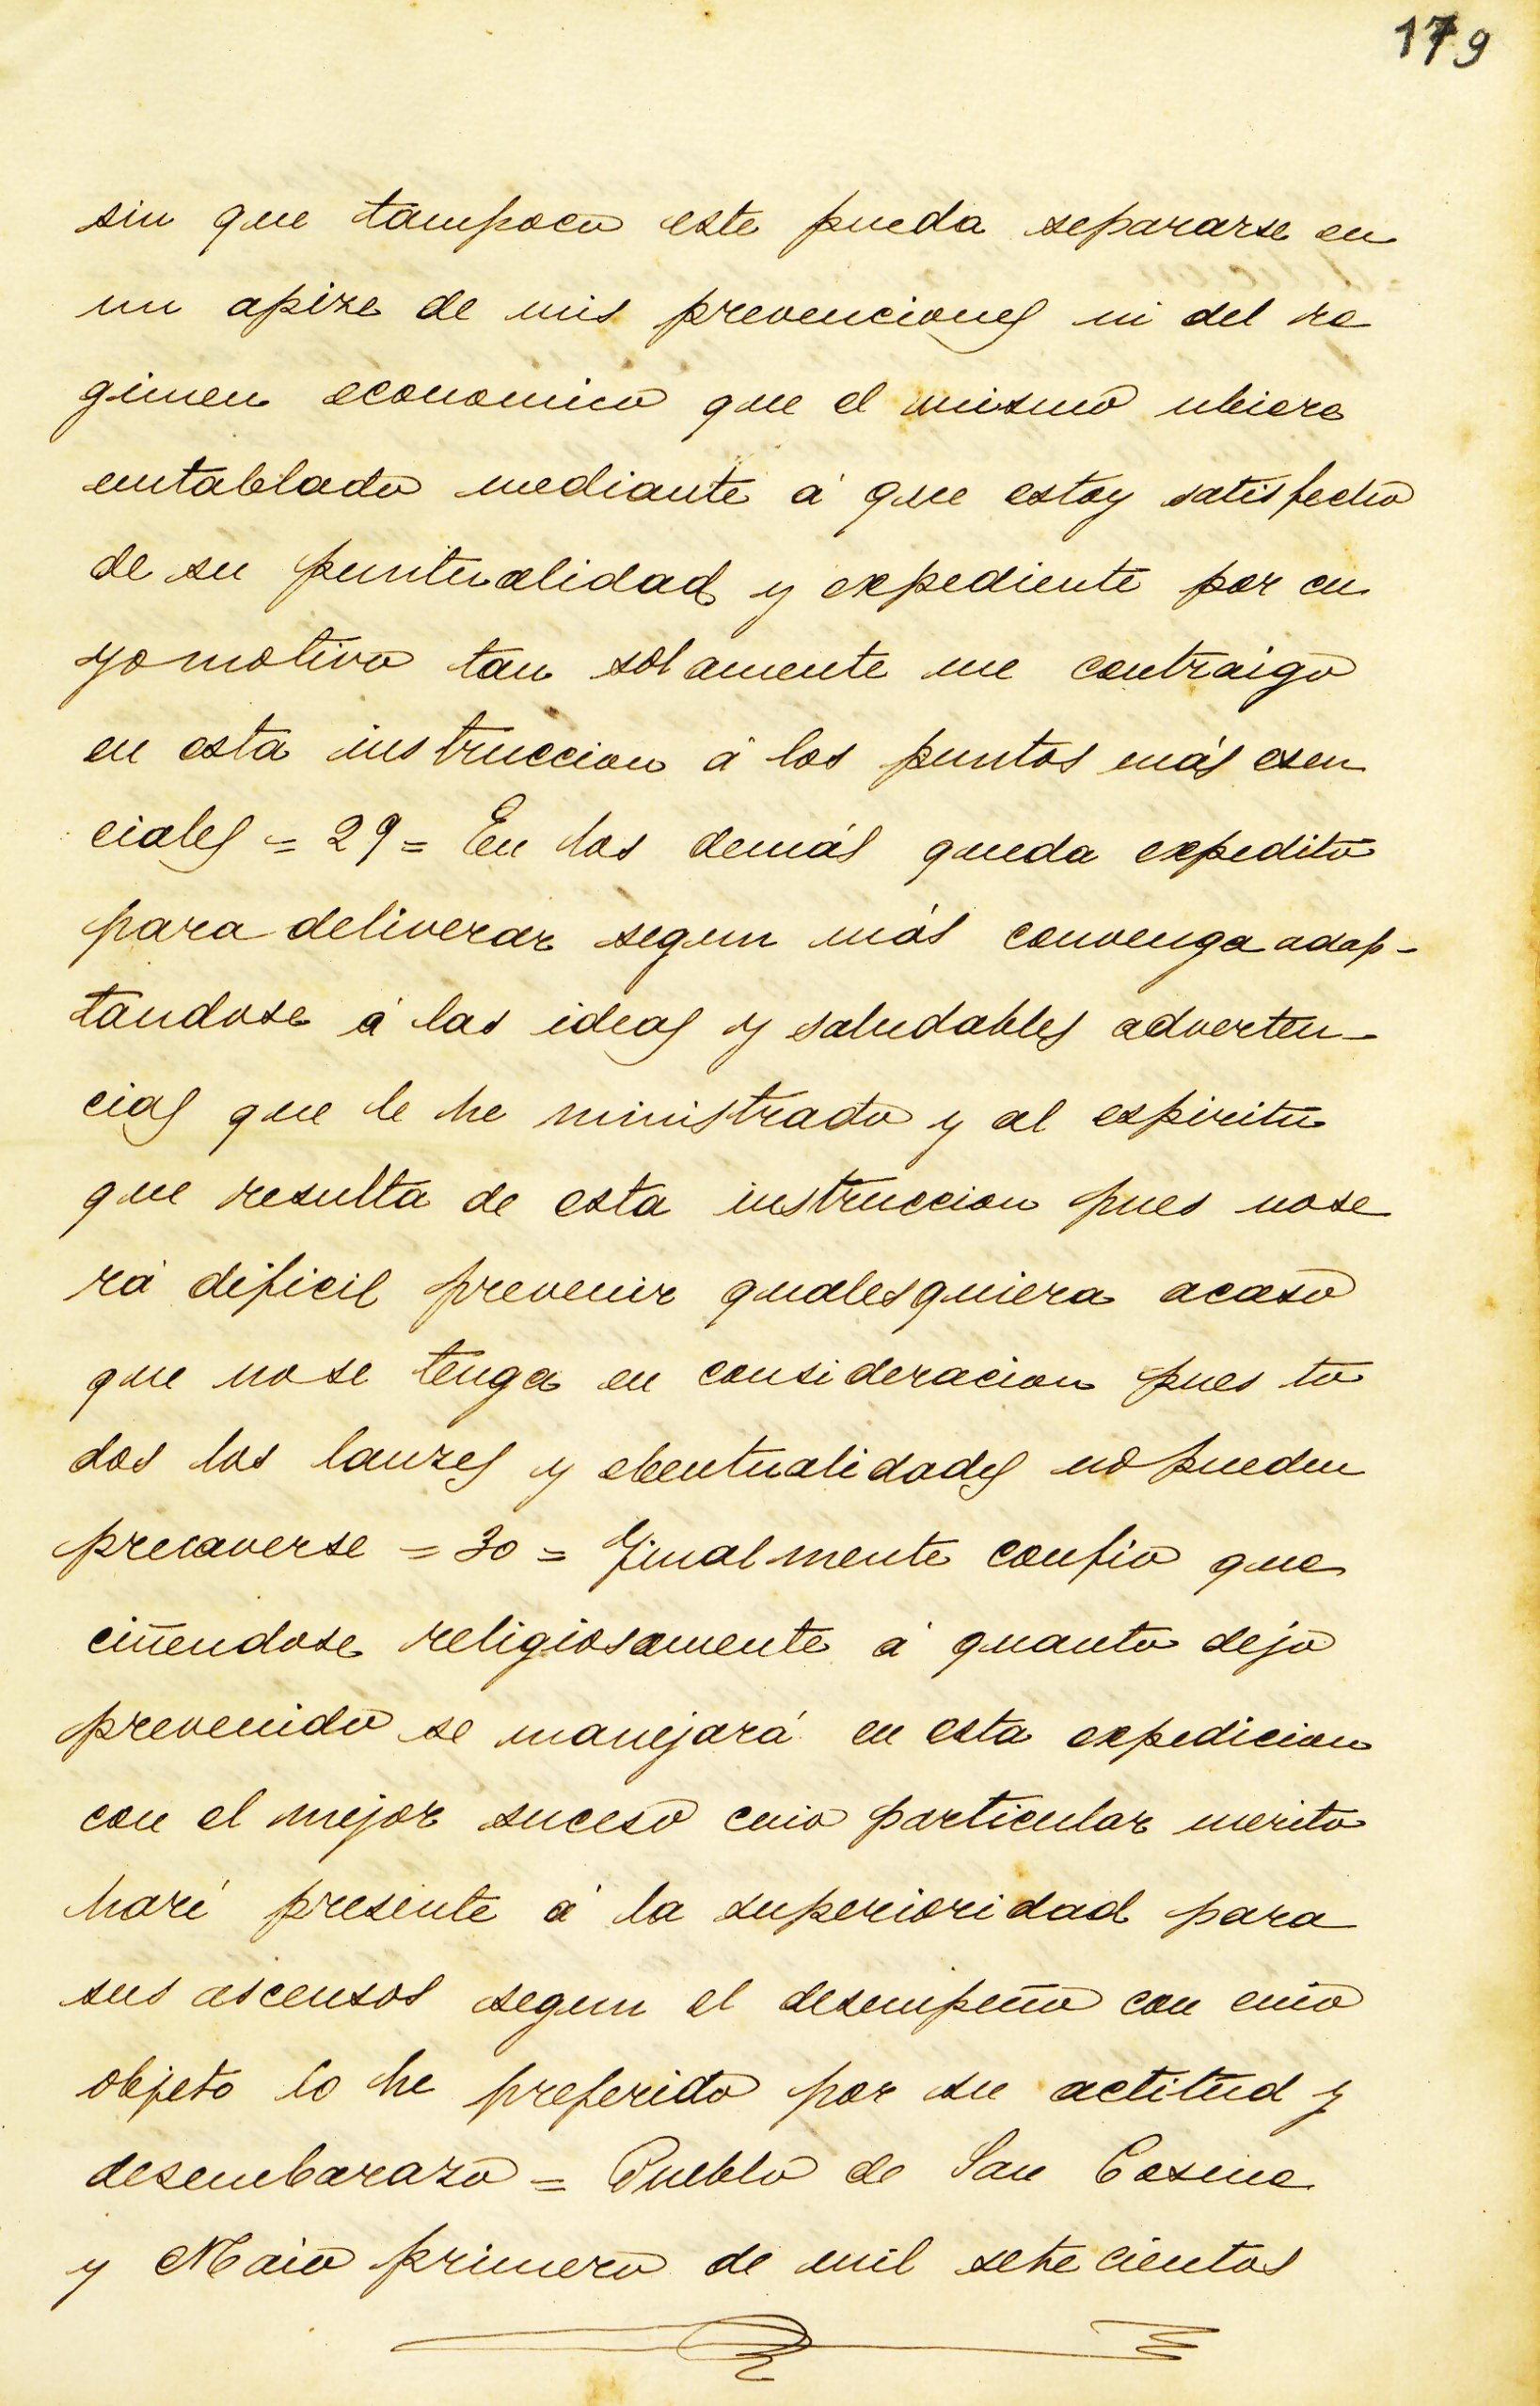 179
sin que tampoco este pueda separarse en
un apize de mis prevenciones ni del re
gimen economico que el mismo ubiere
entablado mediante á que estoy satisfecho
de su puntualidad y expediente por cu
yo motivo tan solamente me contraigo
en esta instruccion á los puntos más esen
ciales = 29 = En los demás queda expedito
para deliverar segun más convenga adap-
tandose á las ideas y saludables adverten-
cias que le he ministrado y al espiritu
que resulta de esta instruccion pues no se
rá dificil prevenir qualesquiera acaso
que no se tenga en consideracion pues to
dos los lanzes y ebentualidades no pueden
precaverse = 30 = Finalmente confio que
ciñendose religiosamente á quanto dejo
prevenido se manejará en esta expedicion
con el mejor suceso cuio particular merito
haré presente á la superioridad para
sus ascensos segun el desempeño con cuio
objeto lo he preferido por su actitud y
desembarazo = Pueblo de San Cosme
y Maio primero de mil sete cientos